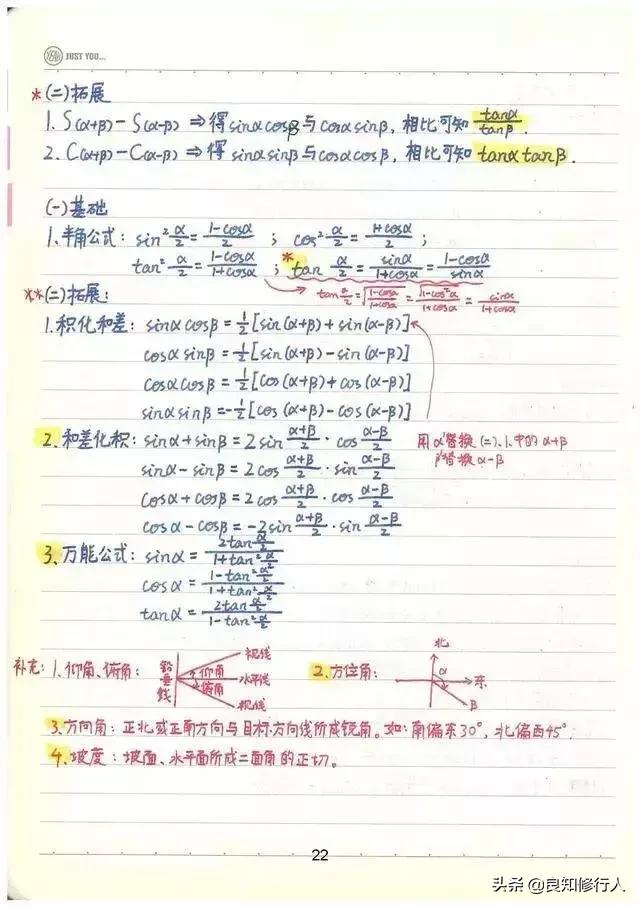 YEAH JUST YOU...
*(二)拓展
1. S(α+β)-S(α-β) ⇒ 得sinαcosβ与cosαsinβ, 相比可知 tanα/tanβ.
2. C(α+β)-C(α-β) ⇒ 得 sinαsinβ与cosαcosβ, 相比可知 tanαtanβ.
(一)基础
1、半角公式: sin²α/2=(1-cosα)/2 ; cos²α/2=(1+cosα)/2 ;
tan²α/2=(1-cosα)/(1+cosα) ; *tan α/2=sinα/(1+cosα)=(1-cosα)/sinα
tanα/2=√((1-cosα)/(1+cosα))=√(1-cos²α)/(1+cosα)=sinα/(1+cosα)
**(二)拓展:
1.积化和差: sinαcosβ=½[sin(α+β)+sin(α-β)]
cosαsinβ=½[sin(α+β)-sin(α-β)]
cosαcosβ=½[cos(α+β)+cos(α-β)]
sinαsinβ=-½[cos(α+β)-cos(α-β)]
2、和差化积: sinα+sinβ=2sin(α+β)/2·cos(α-β)/2
用α替换(二)、1、中的α+β
sinα-sinβ=2cos(α+β)/2·sin(α-β)/2
β替换α-β
cosα+cosβ=2cos(α+β)/2·cos(α-β)/2
cosα-cosβ=-2sin(α+β)/2·sin(α-β)/2
3、万能公式: sinα=2tanα/2/(1+tan²α/2)
cosα=(1-tan²α/2)/(1+tan²α/2)
tanα=2tanα/2/(1-tan²α/2)
补充: 1、仰角、俯角: 铅垂线 仰角 俯角 视线 水平线 视线
2、方位角: 北 α 东 β
3、方向角: 正北或正南方向与目标方向线所成锐角。如: 南偏东30°, 北偏西45°.
4、坡度: 坡面、水平面所成二面角的正切。
22
头条@良知修行人